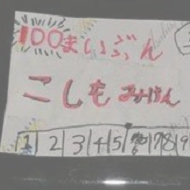 100まいぶん
こしもみけん
1 2 3 4 5 6 7 8 9